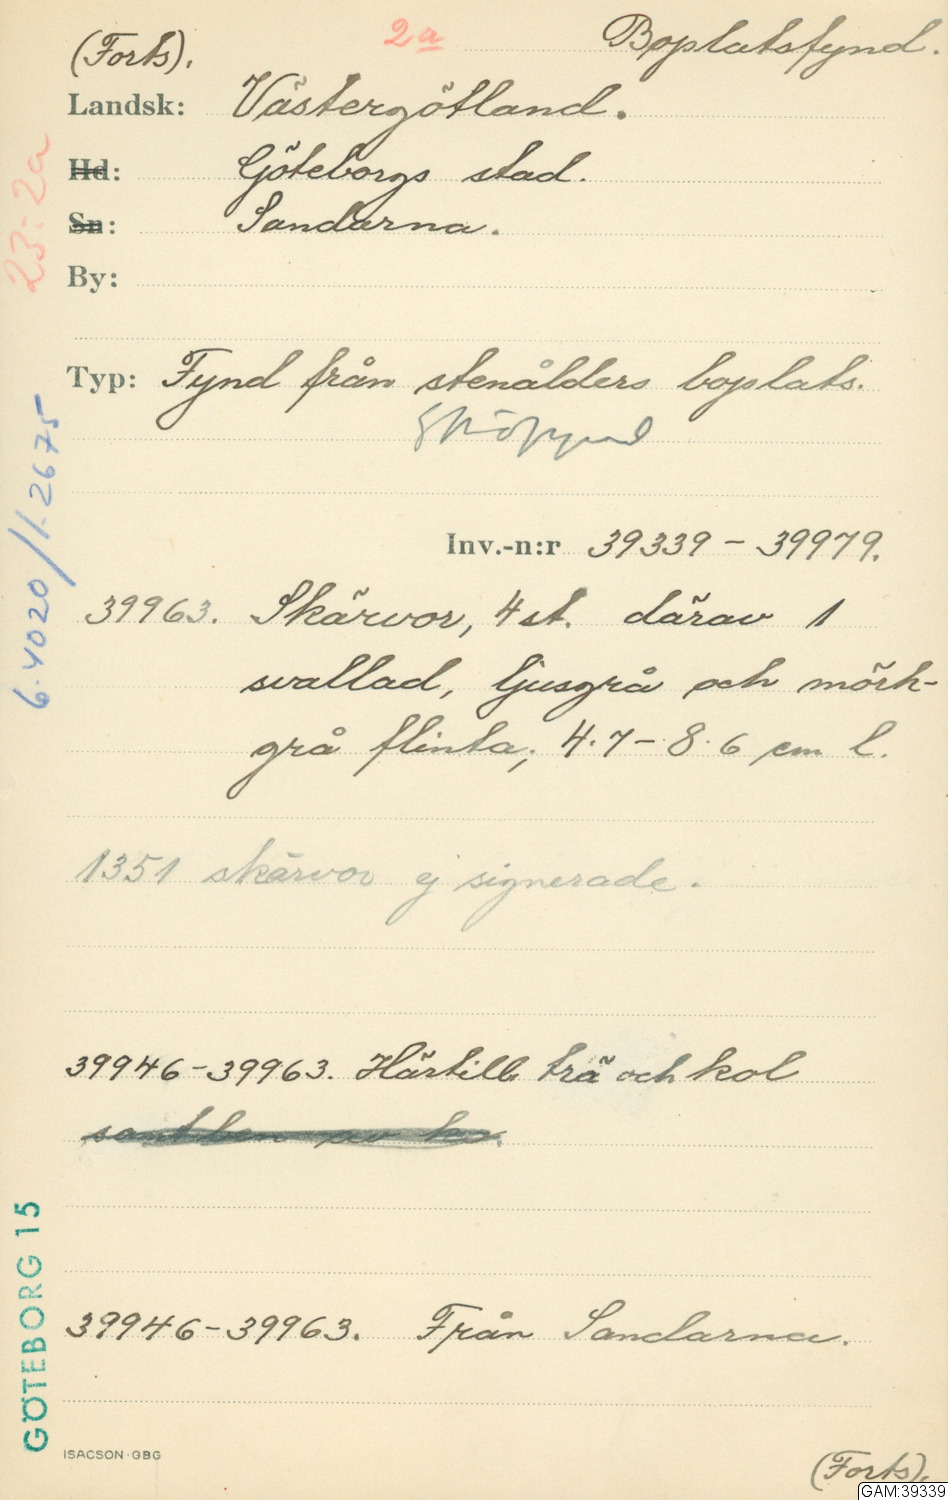 (Forts).
2a
Boplatsfynd.
Landsk: Västergötland.
Hd: Göteborgs stad.
Sn: Sandarna.
By:
23:2a
Typ: Fynd från stenålders boplats.
Inv.-n:r 39339 - 39979.
39963. Skärvor, 4 st. därav 1
svallad, ljusgrå och mörk-
grå flinta; 4.7 - 8.6 cm l.
6.4020/1.2675
1351 skärvor ej signerade.
39946-39963. Härtill trä och kol
39946-39963. Från Sandarna.
GÖTEBORG 15
ISACSON·GBG
(Forts).
GAM:39339